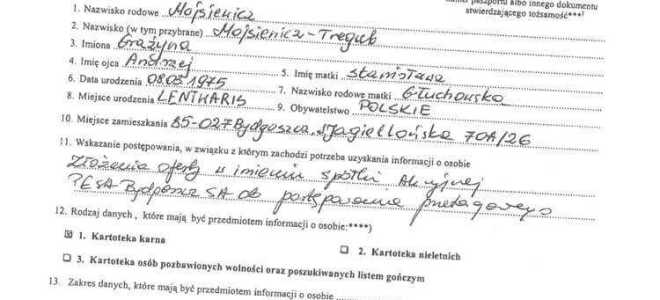 numer paszportu albo innego dokumentu
stwierdzającego tożsamość***⁾
1. Nazwisko rodowe Mojsienicz
2. Nazwisko (w tym przybrane) Mojsienicz-Tregub
3. Imiona Grażyna
4. Imię ojca Andrzej
5. Imię matki Stanisława
6. Data urodzenia 08.03.1975
7. Nazwisko rodowe matki Głuchowska
8. Miejsce urodzenia LENTWARIS
9. Obywatelstwo POLSKIE
10. Miejsce zamieszkania 85-027 Bydgoszcz, Jagiellońska 70A/26
11. Wskazanie postępowania, w związku z którym zachodzi potrzeba uzyskania informacji o osobie
Złożenie oferty w imieniu spółki Akcyjnej
PESA Bydgoszcz SA do postępowania przetargowego
12. Rodzaj danych, które mają być przedmiotem informacji o osobie:****)
☒ 1. Kartoteka karna
☐ 2. Kartoteka nieletnich
☐ 3. Kartoteka osób pozbawionych wolności oraz poszukiwanych listem gończym
13. Zakres danych, które mają być przedmiotem informacji o osobie